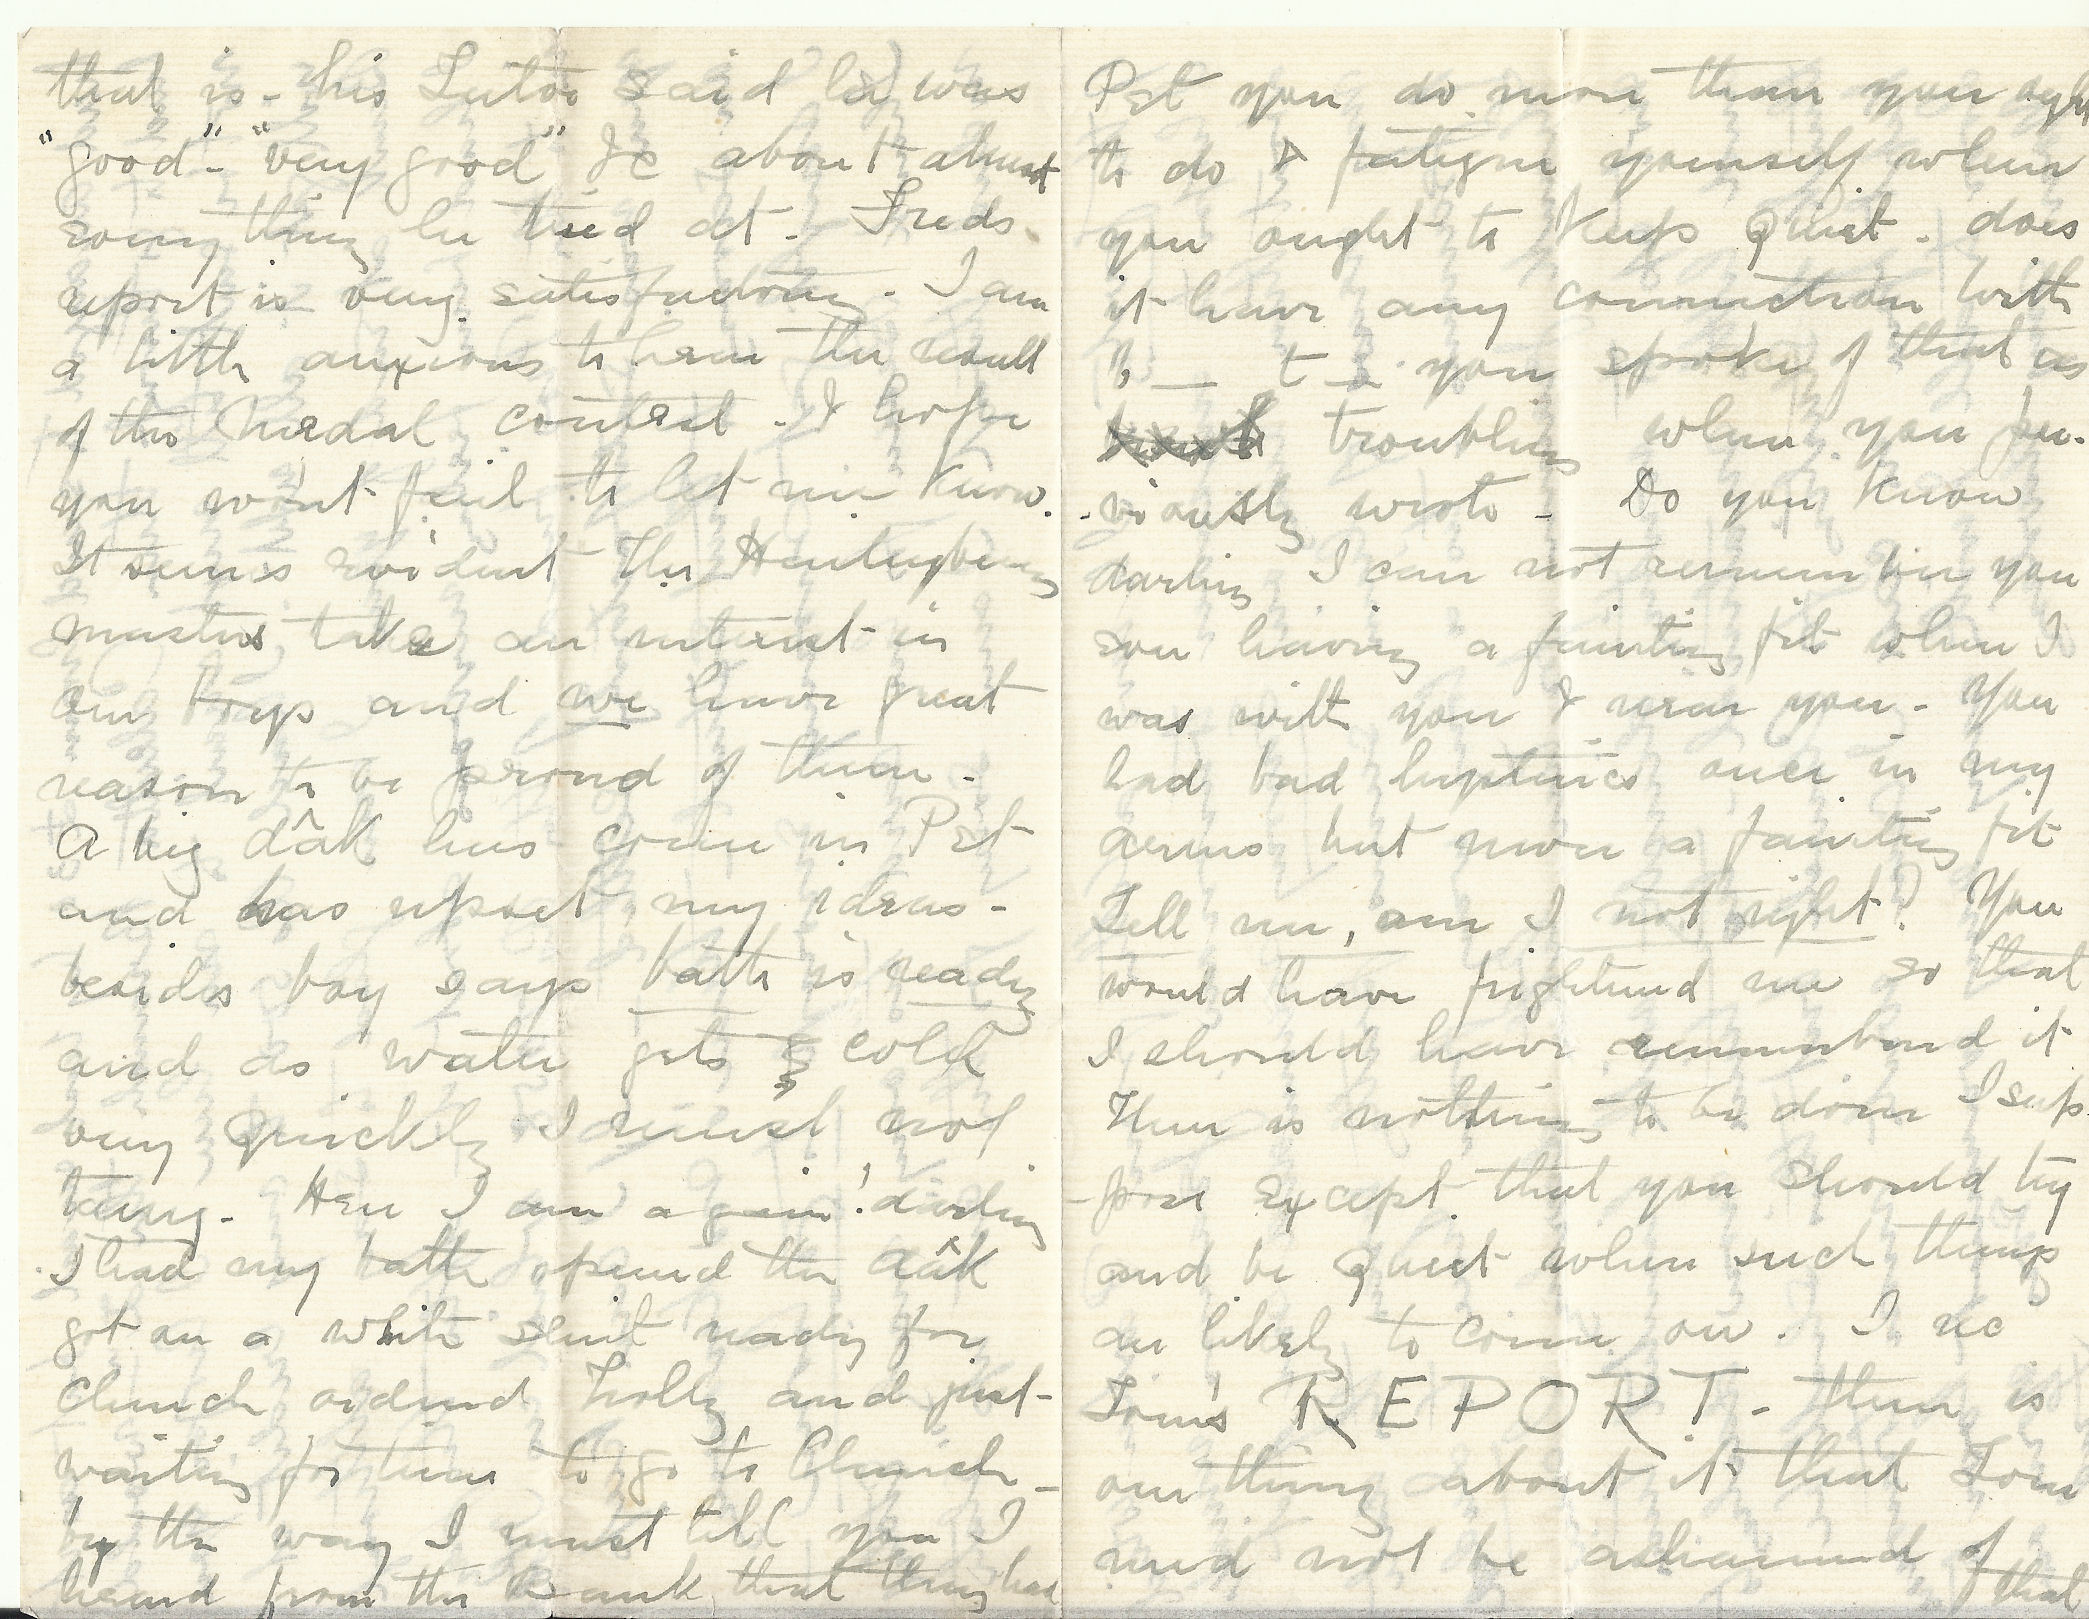 that is - his Tutor said he was
"good" - "very good" &c about almost
everything he tried at - Freds
report is very satisfactory - I am
a little anxious to hear the result
of the Medal contest - I hope
you wont fail to let me know.
It seems evident the Haileybury
masters take an interest in
our boys and we have great
reason to be proud of them -
A big dâk has come in Pet
and has upset my ideas -
besides boy says bath is ready
and as water gets cold
very quickly I must not
tarry - Here I am again! darling
I had my bath opened the dâk
got on a white suit ready for
Church ordered Trolly and just
waiting for time to go to Church -
by the way I must tell you I
heard from the Bank that they had
Pet you do more than you ought
to do & fatigue yourself when
you ought to keep quiet - does
it have any connection with
" — t — you spoke of that as
troubling when you pre-
-viously wrote - Do you know
darling I can not remember you
ever having a fainting fit when I
was with you & near you - You
had bad hysterics once in my
arms but never a fainting fit
Tell me, am I not right? You
would have frightened me so that
I should have remembered it
There is nothing to be done I sup-
-pose except that you should try
and be quiet when such things
are likely to come on. I rec
Tom's REPORT - there is
one thing about it that Tom
need not be ashamed of
that